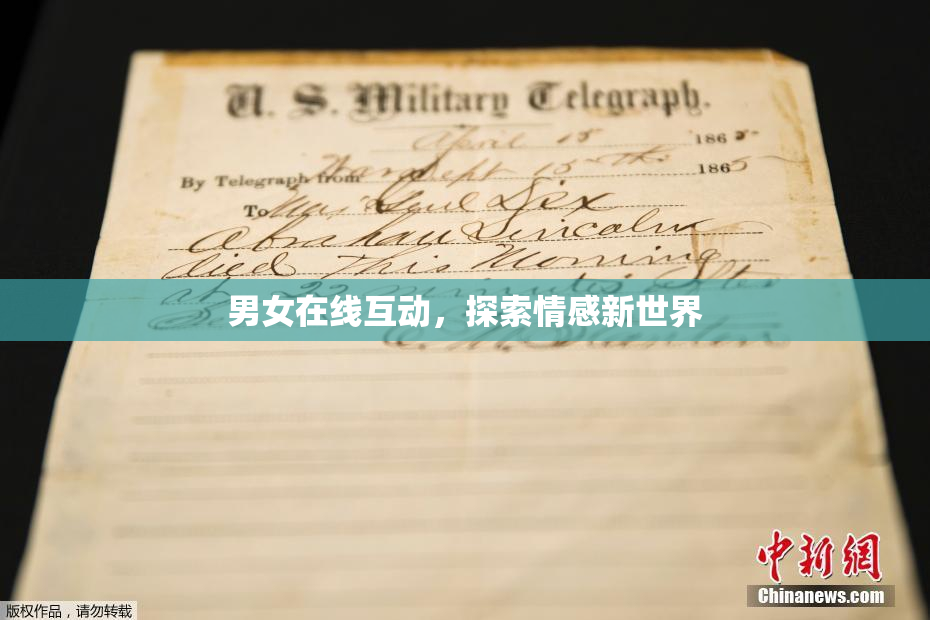 U. S. Military Telegraph.
April 15 1865
By Telegraph from War Dept 15th 1865
To Maj Genl Dix
Abraham Lincoln
died This Morning
at 22 minutes after
男女在线互动，探索情感新世界
中新网
Chinanews.com
版权作品，请勿转载